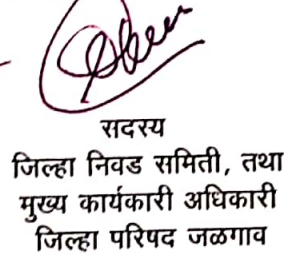 सदस्य
जिल्हा निवड समिती, तथा
मुख्य कार्यकारी अधिकारी
जिल्हा परिषद जळगाव